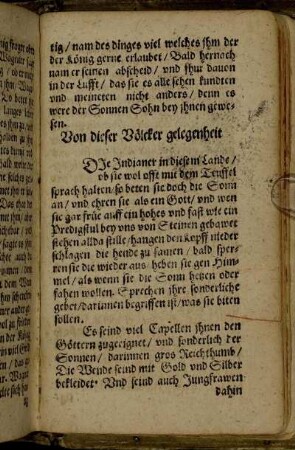 tig / nam des dinges viel welches ihm der
der König gerne erlaubet / Bald hernach
nam er seinen abscheid / und fhur dauon
in der Lufft / das sie es alle sehen kundten
und meineten nicht anders / denn es
were der Sonnen Sohn bey ihnen gewe-
sen.
Von dieser Völcker gelegenheit
DIe Indianer in diesem Lande /
ob sie wol offt mit dem Teuffel
sprach halten / so beten sie doch die Sonn
an / und ehren sie als ein Gott / und wen
sie gar früe auff ein hohes und fast wie ein
Predigstul bey uns von Steinen gebawet
stehen allda stille / hangen den Kopff nieder
schlagen die hende zu samen / bald sper-
ren sie die wieder aus heben sie gen Him-
mel / als wenn sie die Sonn heben oder
fahen wollen. Sprechen ihre sonderliche
gebet / darinnen begriffen ist / was sie biten
sollen.
Es seind viel Capellen ihnen den
Göttern zugeeignet / und sonderlich der
Sonnen / darinnen gros Reichthumb /
Die Wende seind mit Gold und Silber
bekleidet. Und seind auch Jungfrawen
dahin